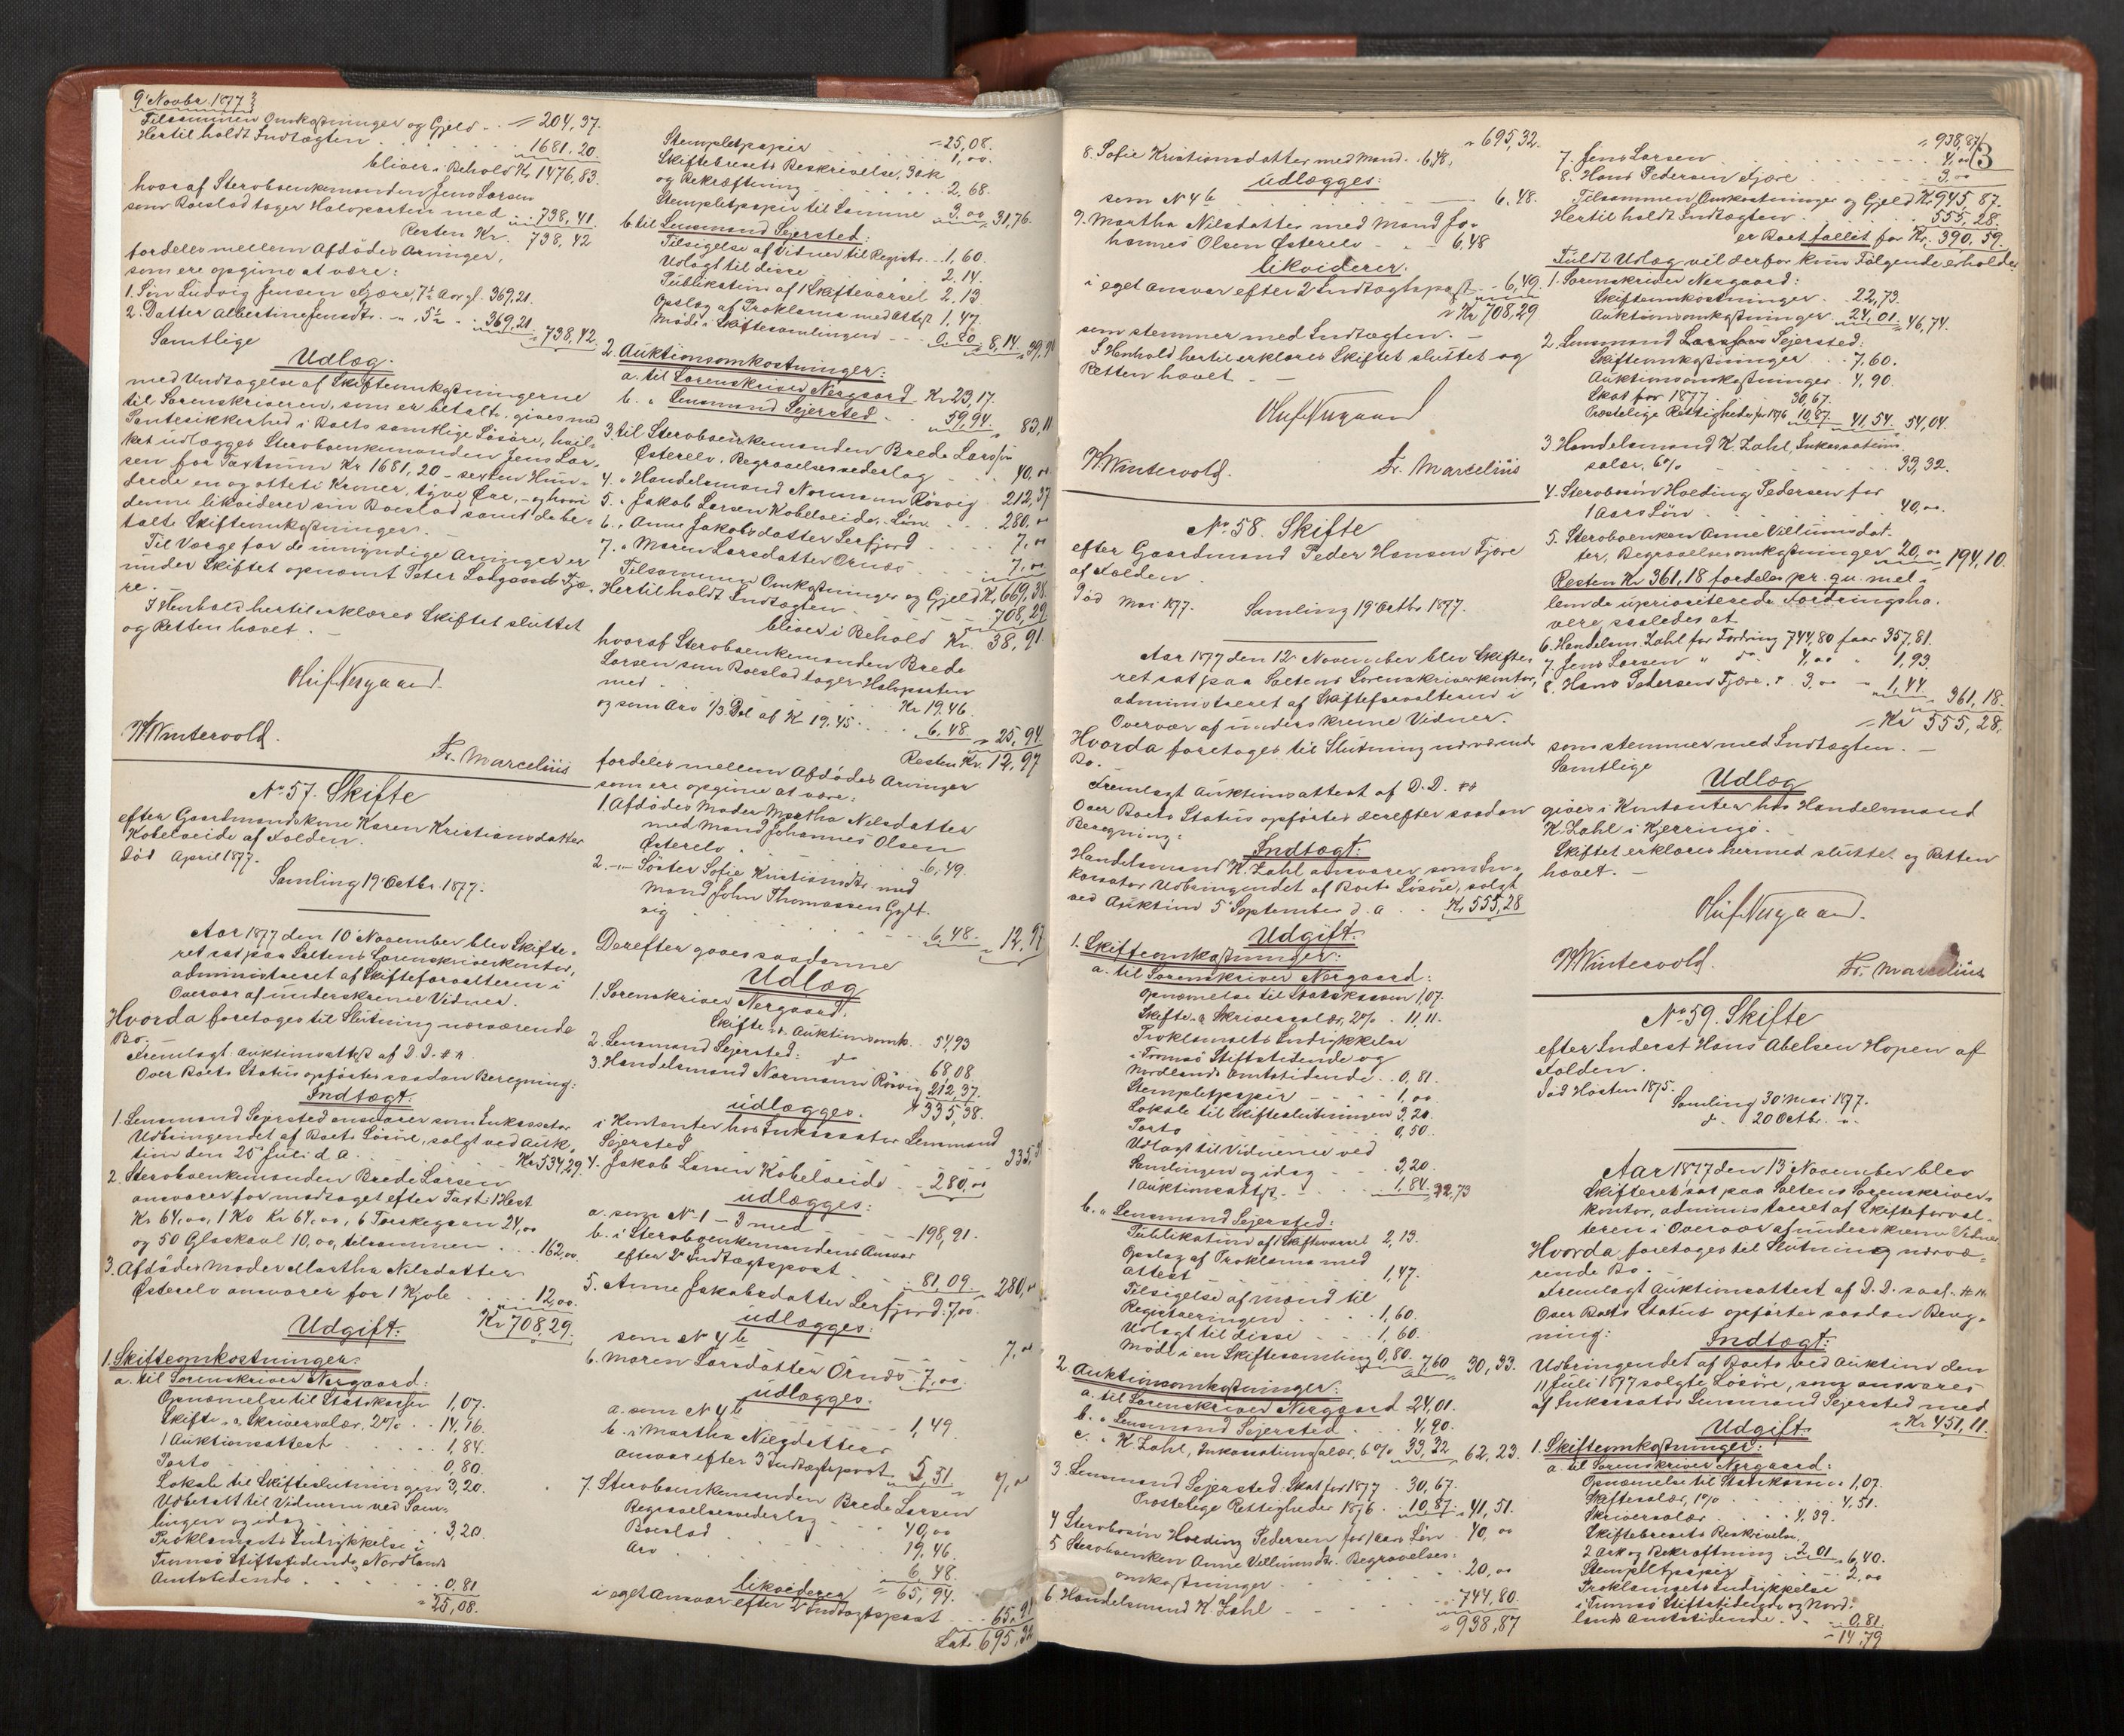 9' Novbr. 1877
Tilsammen Omkostninger og Gjeld . . = 204,37.
Hertil holdt Indtægten . . . 1681.20.
bliver i Behold Kr. 1476,83.
hvoraf Sterboenkemanden Jens Larsen
som Boeslod tager Halvparten med . . . 738,41.
Resten Kr. 738,42
fordeles mellem Afdødes Arvinger,
som ere opgivne at være:
1. Søn Ludvig Jensen Fjære, 7½ Aar gl. 369,21.
2. Datter Albertine Jensdtr. - „ 5½ „ 369,21 738,42.
Samtlige
Udlæg.
med Undtagelse af Skifteomkostningerne
til Sorenskriveren, som er betalt, gives med
Pantesikkerhed i Boets samtlige Løsøre, hvil-
ket udlægges Sterboenkemanden Jens Lar-
sen for Taxtsum Kr 1681,20 - sexten Hun-
drede en og otteti Kroner, tyve Øre, - og hvori
denne likviderer sin Boeslod samt de be-
talte Skifteomkostninger.
Til Værge for de umyndige Arvinger er
under Skiftet opnævnt Peter Fjæ-
re.
I Henhold hertil erklæres Skiftet sluttet
og Retten hævet. -
Oluf Nergaard.
W. Wintervold.
Fr. Marcelius
No 57. Skifte
efter Gaardmandskone Karen Kristiansdatter
Kobelveide af Folden.
Død April 1877.
Samling 19' Octbr. 1877.
Aar 1877 den 10' November blev Skifte-
ret sat paa Saltens Sorenskriverkontor,
administreret af Skifteforvalteren i
Overvær af underskrevne Vidner.
Hvorda foretoges til Slutning nærværende
Bo.
Fremlagt Auktionsattest af D. D.
Over Boets Status opførtes saadan Beregning:
Indtægt:
1. Lensmand Sejersted ansvarer som Inkassator
Udbringendet af Boets Løsøre, solgt ved Auk-
tion den 25' Juli d. A. . . Kr 534,29.
2. Sterboenkemanden Brede Larsen
ansvarer for modtaget efter Taxt: 1 Hest
Kr 64,00, 1 Ko Kr 64,00, 6 Torskegarn 24,00
og 50 Glaskavl 10,00, tilsammen . . 162,00
3. Afdødes Moder Martha Nilsdatter
Østerelv ansvarer for 1 Kjole . . . 12,00.
Kr 708,29.
Udgift:
1. Skifteomkostninger:
a. til Sorenskriver Nergaard:
Opnævnelse til Statskassen 1,07.
Skifte- & Skriversalær, 2% . . 14,16.
1 Auktionsattest . . . . 1,84.
Porto . . . . . 0,80.
Lokale til Skifteslutningen 3,20.
Udbetalt til Vidnerne ved Sam-
lingen og idag . . . . 3,20.
Proklamaets Indrykkelse i
Tromsø Stiftstidende, Nordlands
Amtstidende . . . . . 0,81
= 25,08.
= 25,08.
Stempletpapir . . . . 1,00.
Skiftebrevets Beskrivelse, 3 Ark
og Bekræftning . . . . 2,68.
Stempletpapir til Samme 3,00 31,76.
b. til Lensmand Sejersted:
Tilsigelse af Vidner til Registr. . . 1,60.
Udlagt til disse . . . . 2,14.
Publikation af 1 Skiftevarsel 2,13
Opslag af Proklama med Attest 1,47.
Møde i Skiftesamlingen . . . 0,80 8,14
2. Auktionsomkostninger:
a. til Sorenskriver Nergaard Kr 23,17.
b. „ Lensmand Sejersted . . . 59,94. 83,11
3. til Sterboenkemanden Brede Larsen
Østerelv, Begravelsesvederlag . . . 40,00
4. „ Handelsmand Normann Røsvig 212,37
5. „ Jakob Larsen Kobelveide, Løn . . . 280,00
6. „ Anne Jakobsdatter Lerfjord . . . 7,00
7. „ Maren Larsdatter Ørnes . . . 7,00
Tilsammen Omkostninger og Gjeld Kr 669,38.
Hertil holdt Indtægten . . . . 708,29
bliver i Behold Kr. 38,91
hvoraf Sterboenkemanden Brede
Larsen som Boeslod tager Halvparten
med . . . . Kr 19,46.
og som Arv 1/3 Del af Kr 19,45 . . . 6,48 25,94
Resten Kr. 12,97
fordeles mellem Afdødes Arvinger
som ere opgivne at være:
1. Afdødes Moder Martha Nilsdatter
med Mand Johannes Olsen
Østerelv . . . . 6,49.
2. -„- Søster Sofie Kristiansdtr. med
Mand John Thomassen Gylt-
vig . . . . . 6,48 12,97
Derefter gaves saadanne
Udlæg
1. Sorenskriver Nergaard.
Skifte- & Auktionsomk. 54,93
2. Lensmand Sejersted: do 68,08.
3. Handelsmand Normann Røsvig 212,37.
udlægges. Kr 335,38.
i Kontanter hos Inkassator Lensmand
Sejersted . . . . 335,38
4. Jakob Larsen Kobelveide . . 280,00
udlægges:
a. som No 1 - 3 med . . . 198,91.
b. i Sterboenkemandens Ansvar
efter 2' Indtægtspost . . . 81,09 280,00
5. Anne Jakobsdatter Lerfjord: 7,00.
udlægges:
som No 4 b . . . 7,00
6. Maren Larsdatter Ørnes . 7,00.
udlægges.
a. som No 4 b . . . 1,49.
b. i Martha Nilsdatters
Ansvar efter 3' Indtægtspost 5,51. 7,00
7. Sterboenkemanden Brede Larsen
Begravelsesvederlag . . . 40,00
Boeslod . . . . 19,46.
Arv . . . . 6,48.
likviderer = 65,94.
i eget Ansvar efter 2' Indtægtspost . . . 65,94
Lat. 695,32
= 695,32.
8. Sofie Kristiansdatter med Mand . 6,48.
udlægges:
som No 4 b . . . . 6,48.
9. Martha Nilsdatter med Mand Jo-
hannes Olsen Østerelv . . . 6,48
likviderer.
i eget Ansvar efter 2' Indtægtspost . . 6,49.
= Kr 708,29
som stemmer med Indtægten. -
I Henhold hertil erklæres Skiftet sluttet og
Retten hævet. -
Oluf Nergaard
W. Wintervold.
Fr. Marcelius
No 58. Skifte
efter Gaardmand Peder Hansen Fjære
af Folden.
Død Mai 1877. Samling 19' Octbr. 1877.
Aar 1877 den 12' November blev Skifte-
ret sat paa Saltens Sorenskriverkontor,
administreret af Skifteforvalteren i
Overvær af underskrevne Vidner.
Hvorda foretoges til Slutning nærværende
Bo.
Fremlagt Auktionsattest af D. D.
Over Boets Status opførtes derefter saadan
Beregning:
Indtægt:
Handelsmand K. Zahl ansvarer som In-
kassator Udbringendet af Boets Løsøre, solgt
ved Auktion 5' September d. A. . . Kr 555,28
Udgift.
1. Skifteomkostninger:
a. til Sorenskriver Nergaard:
Opnævnelse til Statskassen 1,07.
Skifte- & Skriversalær, 2% . 11,11.
Proklamaets Indrykkelse
i Tromsø Stiftstidende og
Nordlands Amtstidende . . 0,81.
Stempletpapir . . . . 1,00
Lokale til Skifteslutningen 3,20.
Porto . . . . . 0,50.
Udlagt til Vidnerne ved
Samlingen og idag . . . 3,20.
1 Auktionsattest . . . . 1,84. 22,73
b. „ Lensmand Sejersted:
Publikation af 1 Skiftevarsel 2,13.
Opslag af Proklama med
Attest . . . . . 1,47.
Tilsigelse af Mænd til
Registreringen . . . . 1,60.
Udlagt til disse . . . . 1,60.
Møde i en Skiftesamling 0,80 7,60 30,33.
2. Auktionsomkostninger:
a. til Sorenskriver Nergaard 24,01.
b. „ Lensmand Sejersted . . . 4,90.
c. „ K. Zahl, Inkassationssalær, 6% 33,32 62,23
3. Lensmand Sejersted Skat for 1877 . 30,67.
Prestelige Rettigheder 1876 . . 10,87 41,51.
4 Sterbosøn Hveding Pedersen for 1 Aars Løn . 40,00
5 Sterboenken Anne Villumsdtr. Begravelses-
omkostninger . . . . . 20,00
6. Handelsmand K. Zahl . . . . 744,80.
= 938,87
= 938,87
3
7. Jens Larsen . . . . . 4,00
8. Hans Pedersen Fjære . . . . 3,00
Tilsammen Omkostninger og Gjeld Kr 945,87.
Hertil holdt Indtægten . . . . 555,28.
er Boet fallit for Kr. 390,59.
Fuldt Udlæg vil derfor kun Følgende erholde:
1. Sorenskriver Nergaard:
Skifteomkostninger . . 22,73.
Auktionsomkostninger 24,01. 46,74.
2. Lensmand Sejersted:
Skifteomkostninger . . 7,60.
Auktionsomkostninger . 4,90.
Skat for 1877 . . 30,67.
Præstelige Rettigheder for 1876 10,87 41,54. 54,04.
3 Handelsmand K. Zahl, Inkassations-
salær, 6% . . . . . 33,32.
4. Sterbosøn Hveding Pedersen for
1 Aars Løn . . . . 40,00.
5. Sterboenken Anne Villumsdat-
ter, Begravelsesomkostninger 20,00 194,10.
Resten Kr 361,18 fordeles pr. qu. mel-
lem de uprioriterede Fordringsha-
vere, saaledes at
6. Handelsm. Zahl for Fordring 744,80 faar 357,81.
7. Jens Larsen „ do. 4,00 „ 1,93.
8. Hans Pedersen Fjære „ 3,00 - 1,44 361,18.
= Kr 555,28.
som stemmer med Indtægten. -
Samtlige
Udlæg
gives i Kontanter hos Handelsmand
K. Zahl i Kjerringø.
Skiftet erklæres hermed sluttet og Retten
hævet. -
Oluf Nergaard.
W. Wintervold.
Fr. Marcelius
No 59. Skifte
efter Inderst Hans Abelsen Hopen af
Folden.
Død Høsten 1875.
Samling 30' Mai 1877.
do. 20' Octbr. „.
Aar 1877 den 13' November blev
Skifteret sat paa Saltens Sorenskriver-
kontor, administreret af Skifteforval-
teren i Overvær af underskrevne Vidner
Hvorda foretoges til Slutning nærvæ-
rende Bo.
Fremlagt Auktionsattest af D. D.
Over Boets Status opførtes saadan Bereg-
ning:
Indtægt:
Udbringendet af Boets ved Auktion den
11' Juli 1877 solgte Løsøre, som ansvares
af Inkassator Lensmand Sejersted med
= Kr 451,11.
Udgift.
1. Skifteomkostninger:
a. til Sorenskriver Nergaard:
Opnævnelse til Statskassen 1,07.
Skiftesalær, 1% . . . . 4,51.
Skriversalær . . . 4,39.
Skiftebrevets Beskrivelse,
2 Ark og Bekræftning 2,01 6,40.
Stempletpapir . . . . 2,00
Proklamaets Indrykkelse
i Tromsø Stiftstidende og Nord-
lands Amtstidende . . . 0,81.
= 14,79